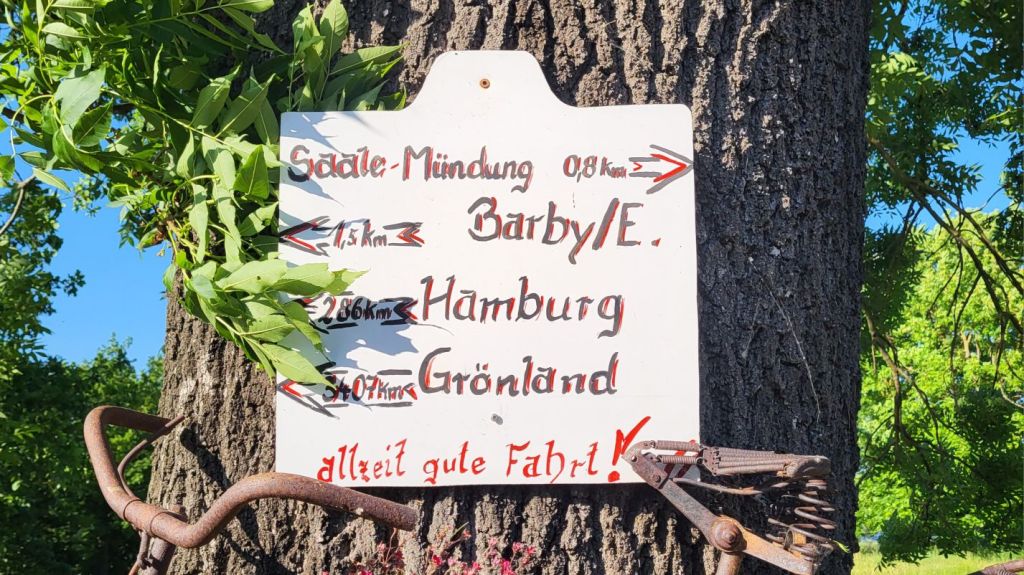 Saale-Mündung 0,8 km
1,5 km Barby/E.
286 km Hamburg
3407 km Grönland
allzeit gute Fahrt!